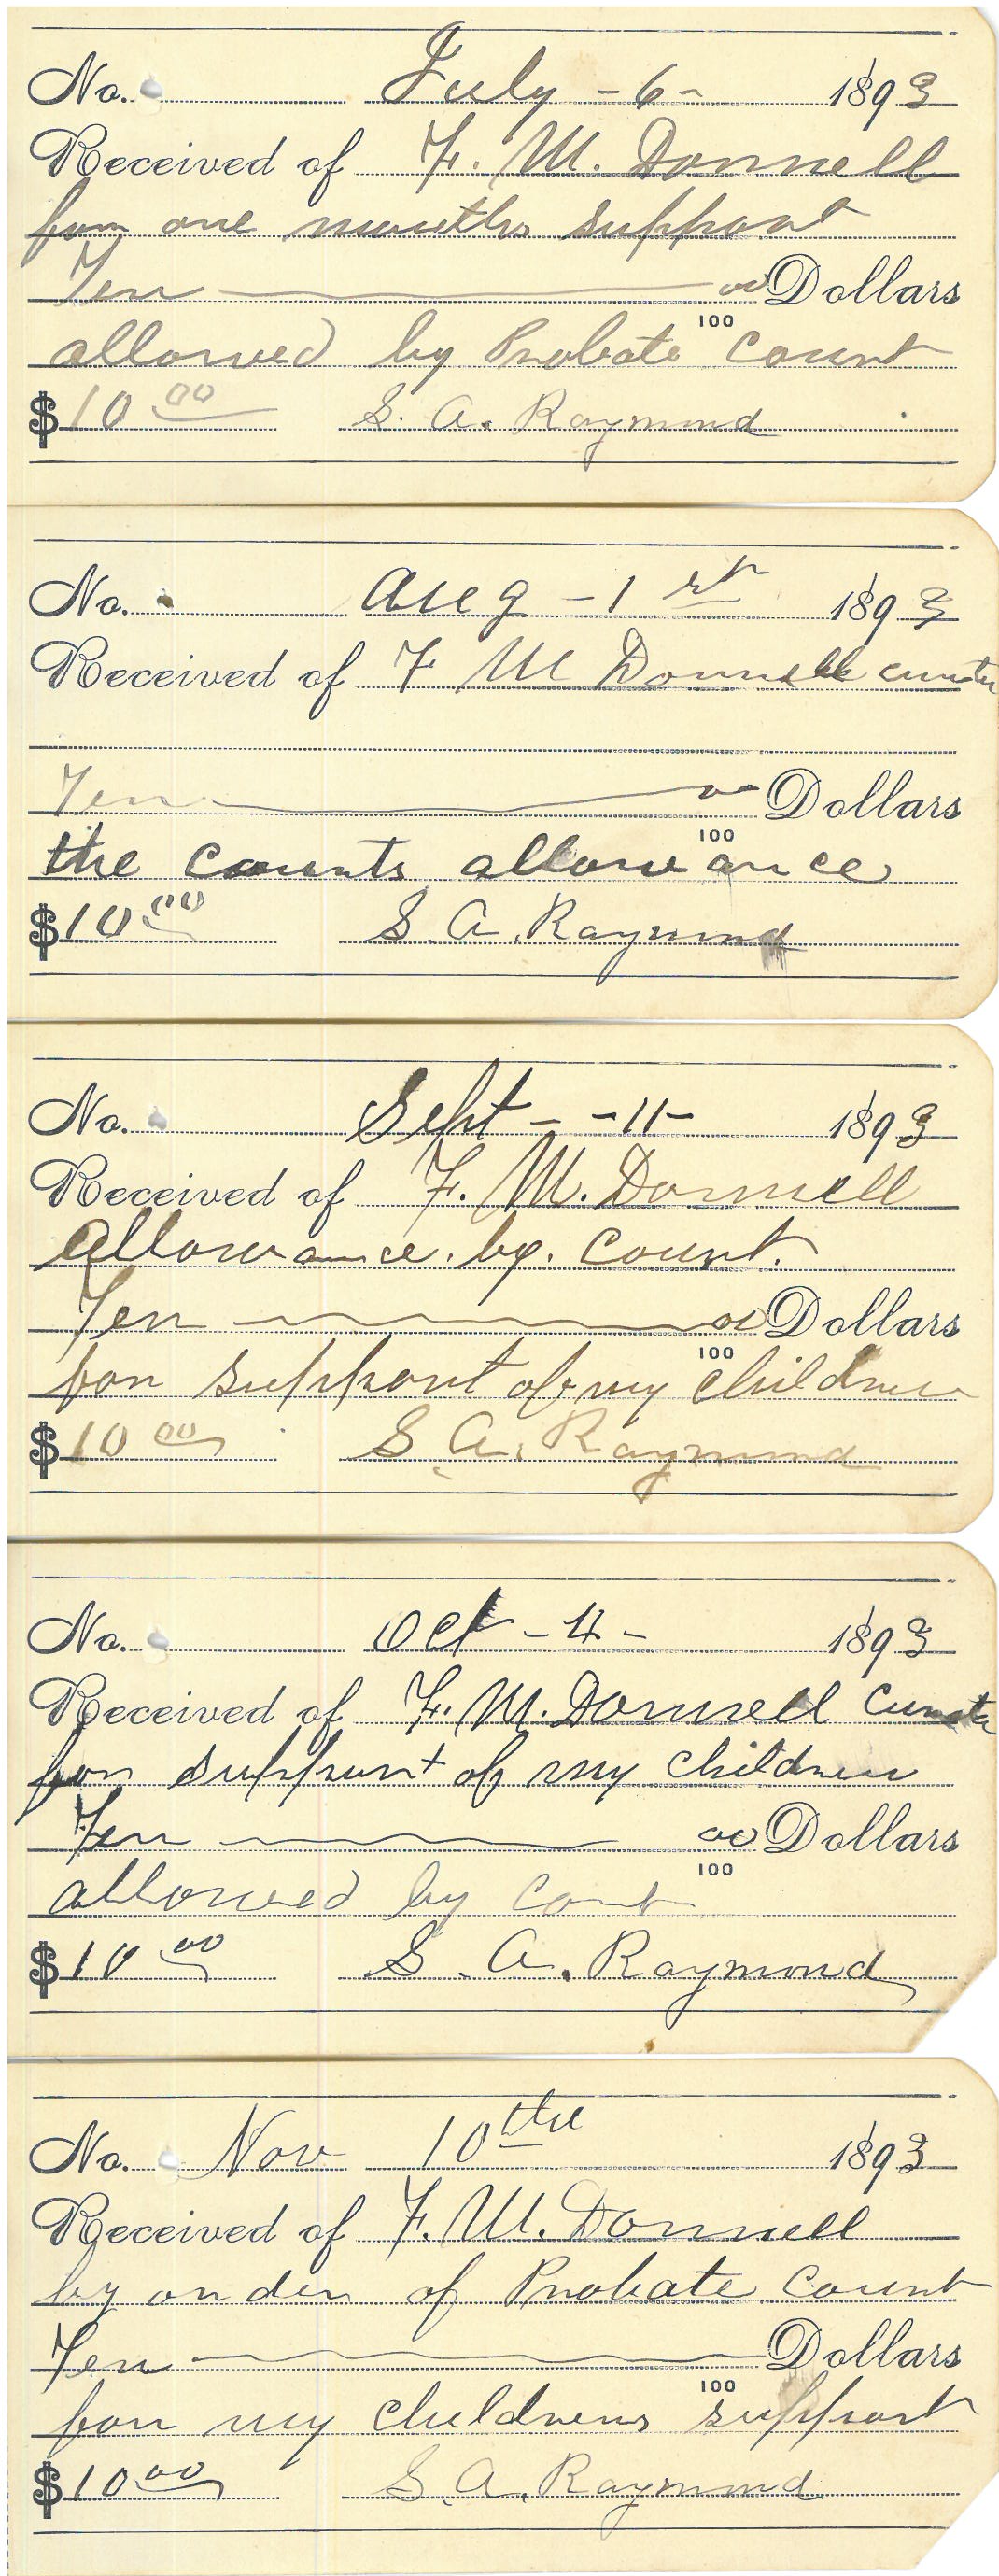 No. July - 6 - 1893
Received of F. M. Donnell
for one months support
Ten 00 Dollars
100
allowed by Probate Court
$10 00 S. A. Raymond
No. Aug - 1 st 1893
Received of F M Donnell
Ten 00 Dollars
100
the courts allowance
$10 00 S. A. Raymond
No. Sept - - 11 - 1893
Received of F. M. Donnell
Allowance by Court.
Ten 00 Dollars
100
for support of my children
$10 00 S. A. Raymond
No. Oct - 4 - 1893
Received of F. M. Donnell
for support of my children
Ten 00 Dollars
100
allowed by Cort
$10 00 S. A. Raymond
No. Nov 10 the 1893
Received of F. M. Donnell
by order of Probate Court
Ten Dollars
100
for my childrens support
$10 00 S. A. Raymond